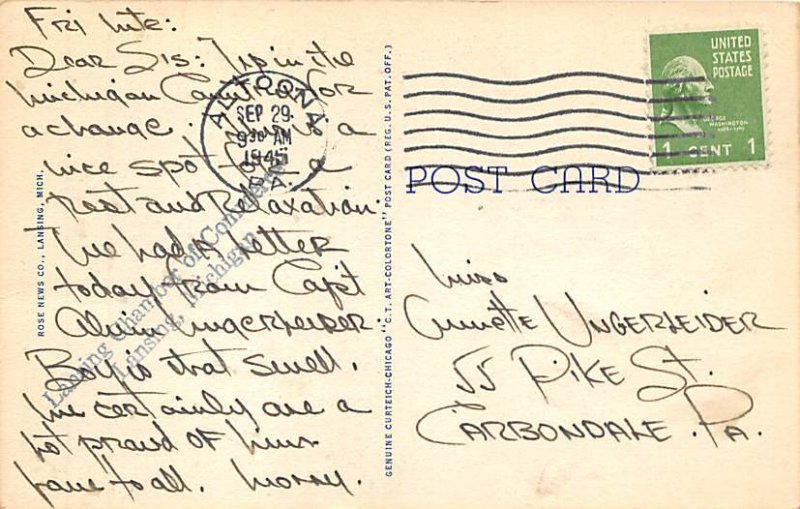 Fri nite:
Dear Sis: I'm in the
Michigan Country for
a change. This is a
nice spot for a
rest and relaxation.
I've had a letter
today from Capt
Alvin Ungerleider.
Boy is that swell.
We certainly are a
lot proud of him.
Love to all. Morry.
ROSE NEWS CO., LANSING, MICH.
Lansing Chamber of Commerce
Lansing, Michigan
GENUINE CURTEICH-CHICAGO "C.T. ART-COLORTONE" POST CARD (REG. U.S. PAT. OFF.)
ALTOONA
SEP 29
9 30 AM
1945
PA.
UNITED
STATES
POSTAGE
GEORGE
WASHINGTON
1 CENT 1
POST CARD
Miss
Annette UNGERLEIDER
55 PIKE St.
CARBONDALE. Pa.